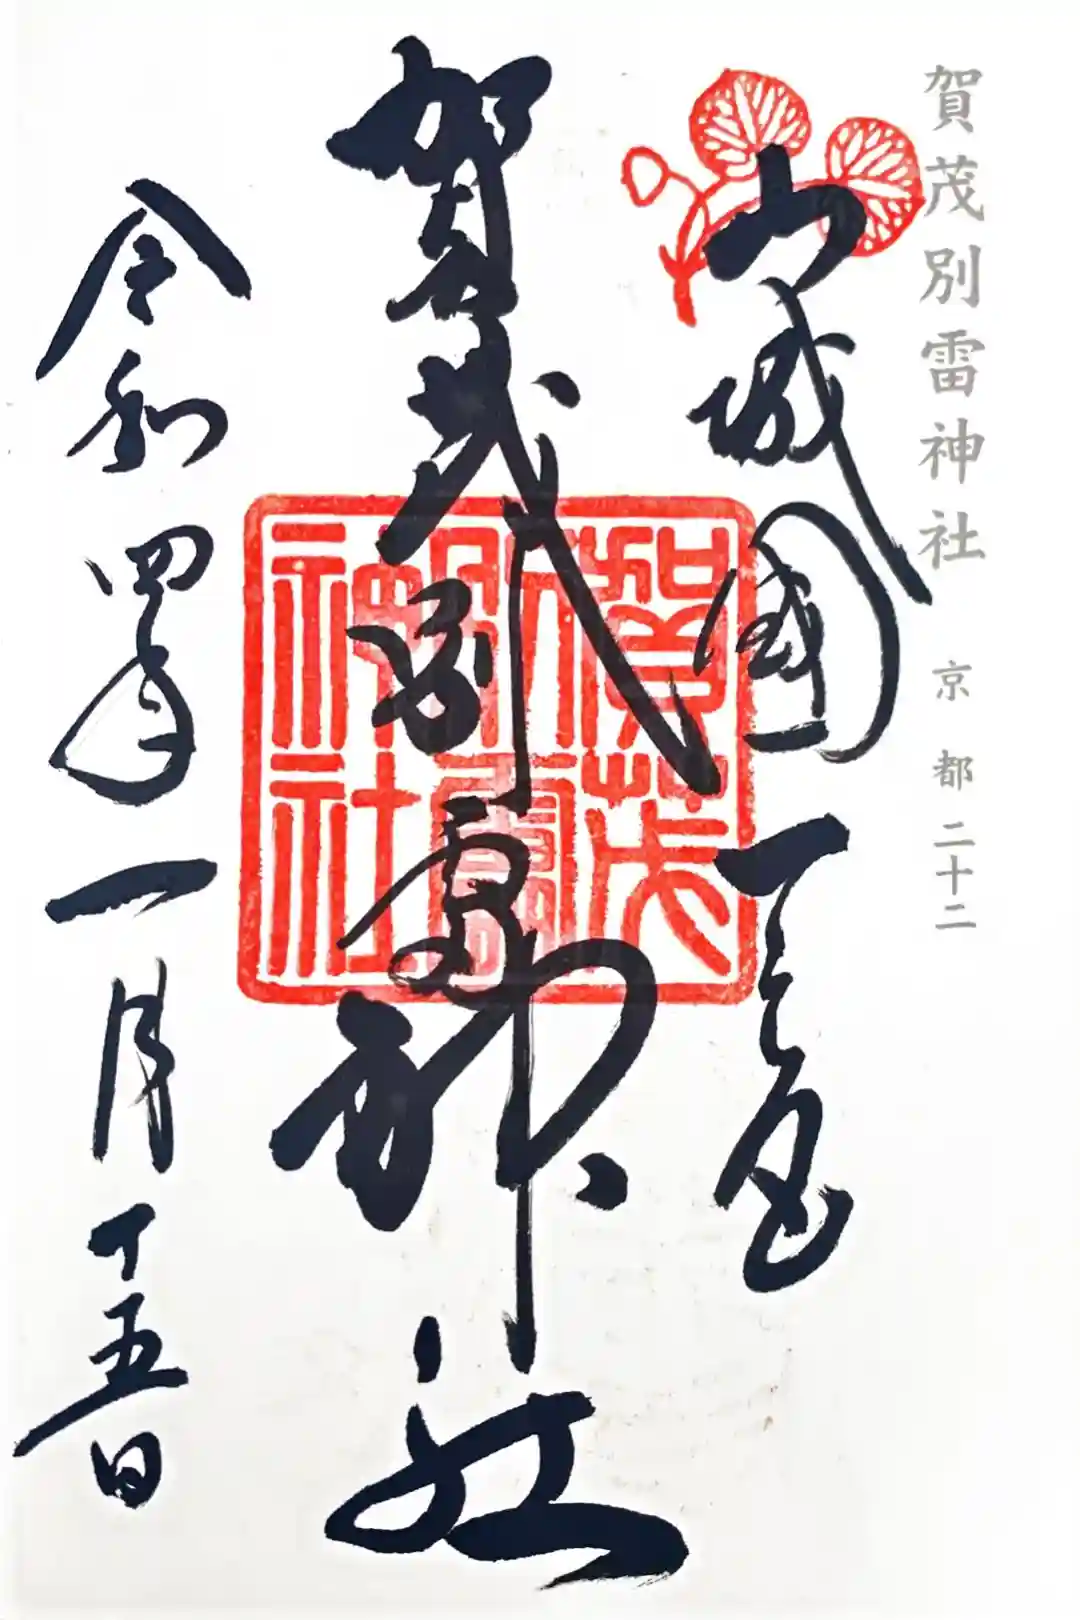 賀茂別雷神社 京都二十二
山城國一之宮
賀茂別雷神社
賀茂
別雷
神社
令和四年一月十五日